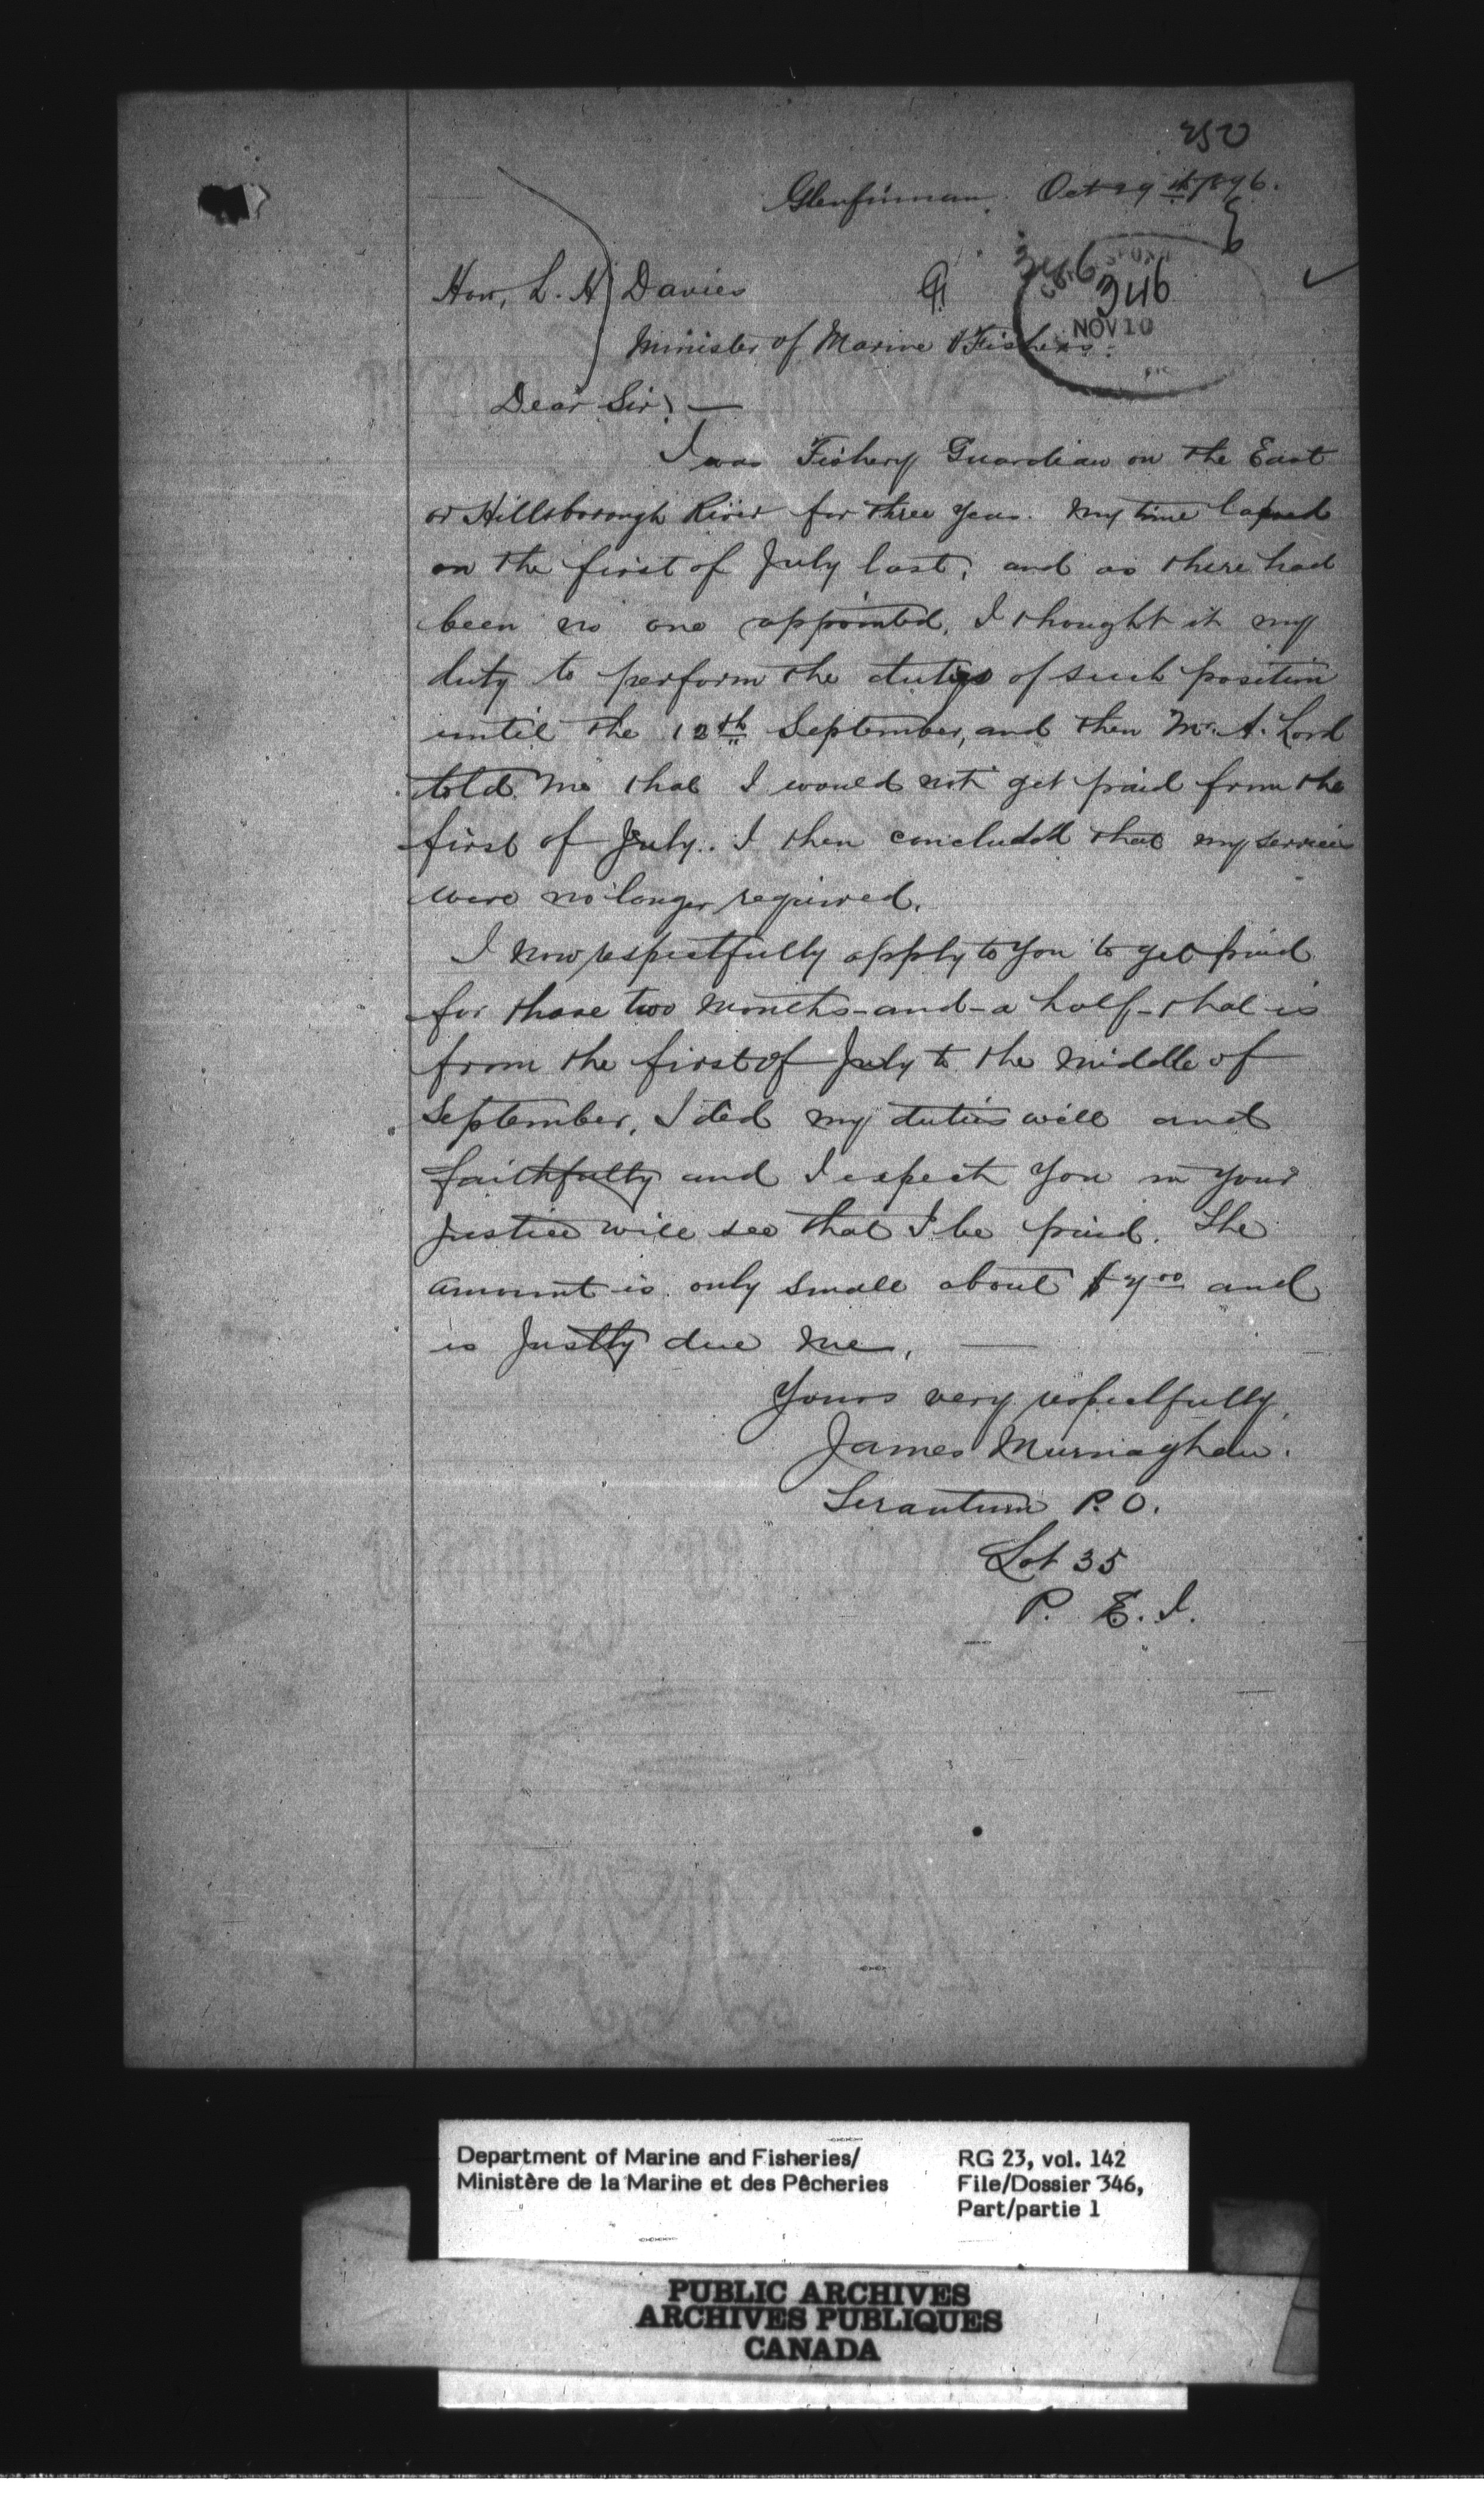 350
Glenfinnan. Oct 29th 1896.
346
346
NOV 10
Hon, L. H Davies
Minister of Marine & Fisheries.
Dear Sir, —
I was Fishery Guardian on the East
or Hillsborough River for three years. My time lapsed
on the first of July last, and as there had
been no one appointed, I thought it my
duty to perform the duties of such position
until the 12th September, and then Mr. A. Lord
told me that I would not get paid from the
first of July. I then concluded that my services
were no longer required.
I now respectfully apply to you to get paid
for those two months-and-a half-that is
from the first of July to the middle of
September, I did my duties well and
faithfully and I expect you in your
justice will see that I be paid. The
amount is only small about and
is justly due me, —
Yours very respectfully,
James Murnaghan.
P. O.
Lot 35
P. E. I.
Department of Marine and Fisheries/
Ministère de la Marine et des Pêcheries
RG 23, vol. 142
File/Dossier 346,
Part/partie 1
PUBLIC ARCHIVES
ARCHIVES PUBLIQUES
CANADA